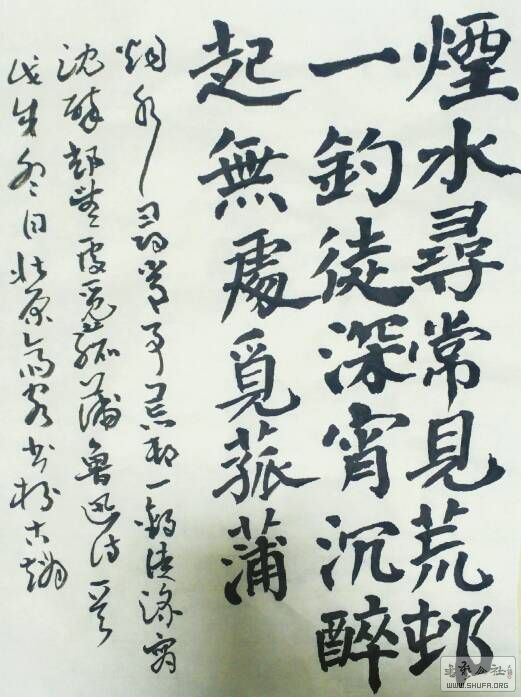 煙水尋常見荒邨
一釣徒深宵沉醉
起無處覓菰蒲
烟水尋常事荒邨一釣徒深宵
沈醉起無處覓菰蒲魯迅诗一首
冬日
WWW.SHUFA.ORG